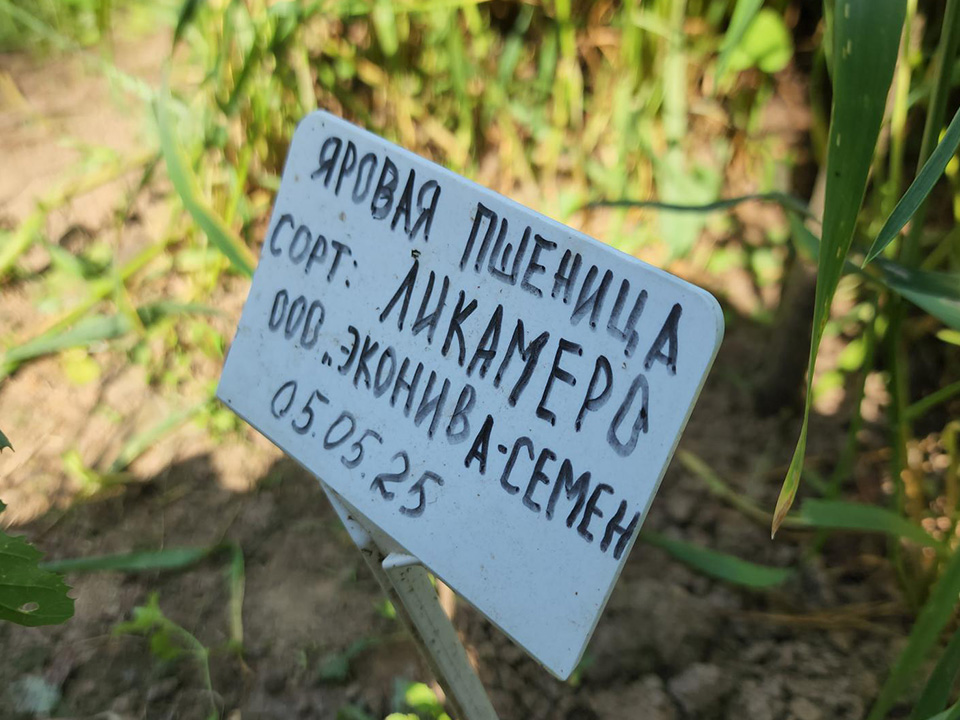 ЯРОВАЯ ПШЕНИЦА
СОРТ: ЛИКАМЕРО
ООО „ЭКОНИВА-СЕМЕН
05.05.25